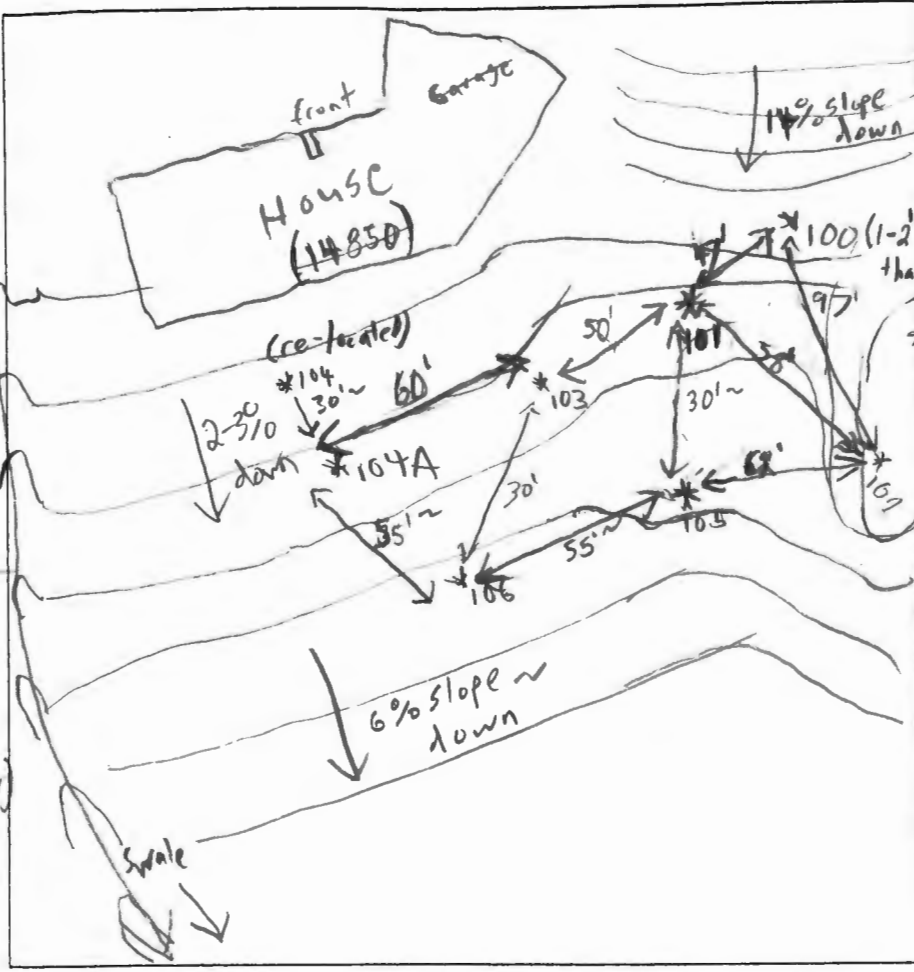 front
Garage
House
(14850)
14% slope
down
100 (1-2'
tha
97'
101
50'
(re-located)
*104
30'~
60'
103
2-3%
down
104A
30'~
30'
55'~
105
55'~
106
6% slope ~
down
Swale